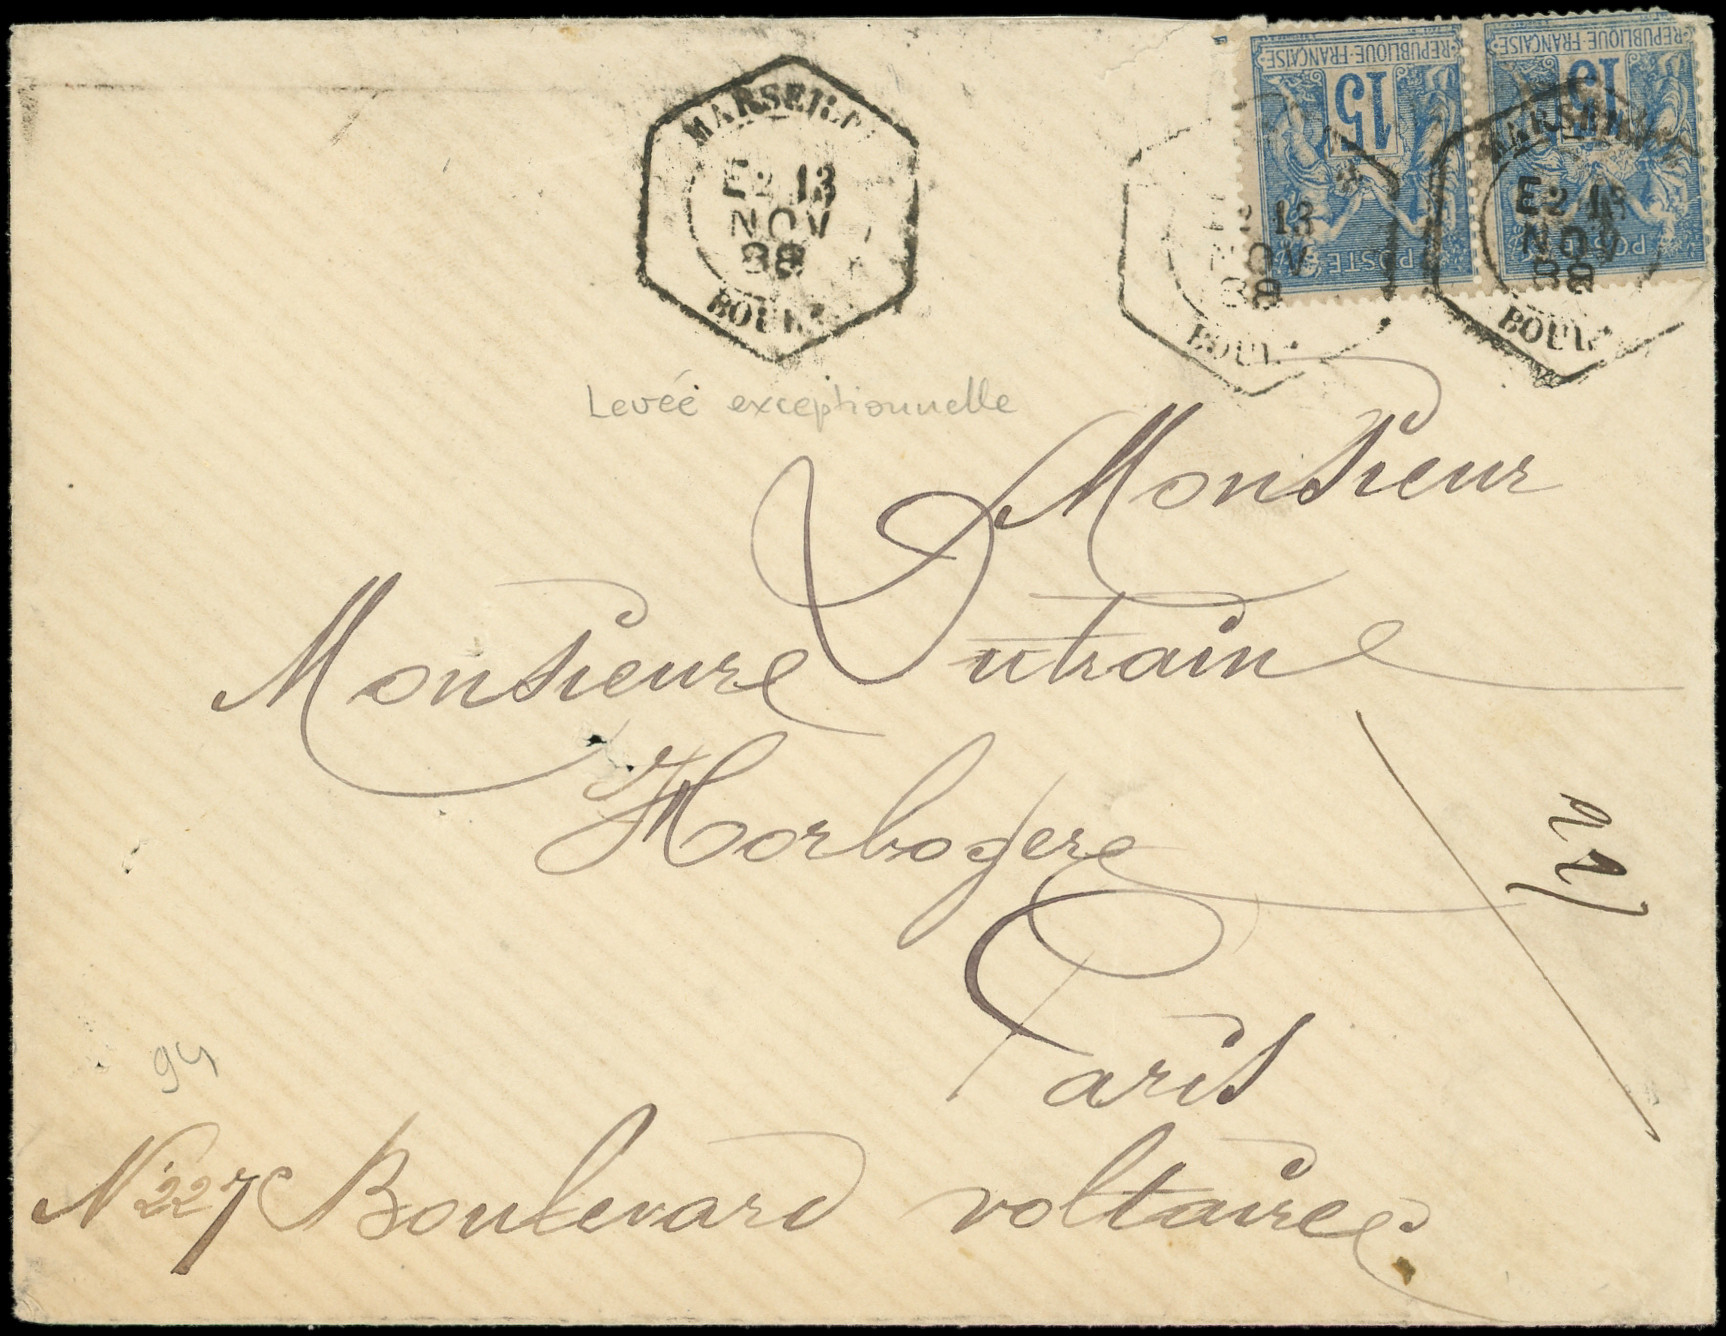 MARSEILLE
E2 13
NOV
88
BOU
REPUBLIQUE FRANÇAISE
15
POSTES
REPUBLIQUE FRANÇAISE
15
POSTES
E2 13
NOV
88
BOU
MARSEILLE
E2 13
NOV
88
BOU
Levée exceptionnelle
Monsieur
Monsieure Dutrain
Horlogere
Paris
94
N 227 Boulevard voltaire